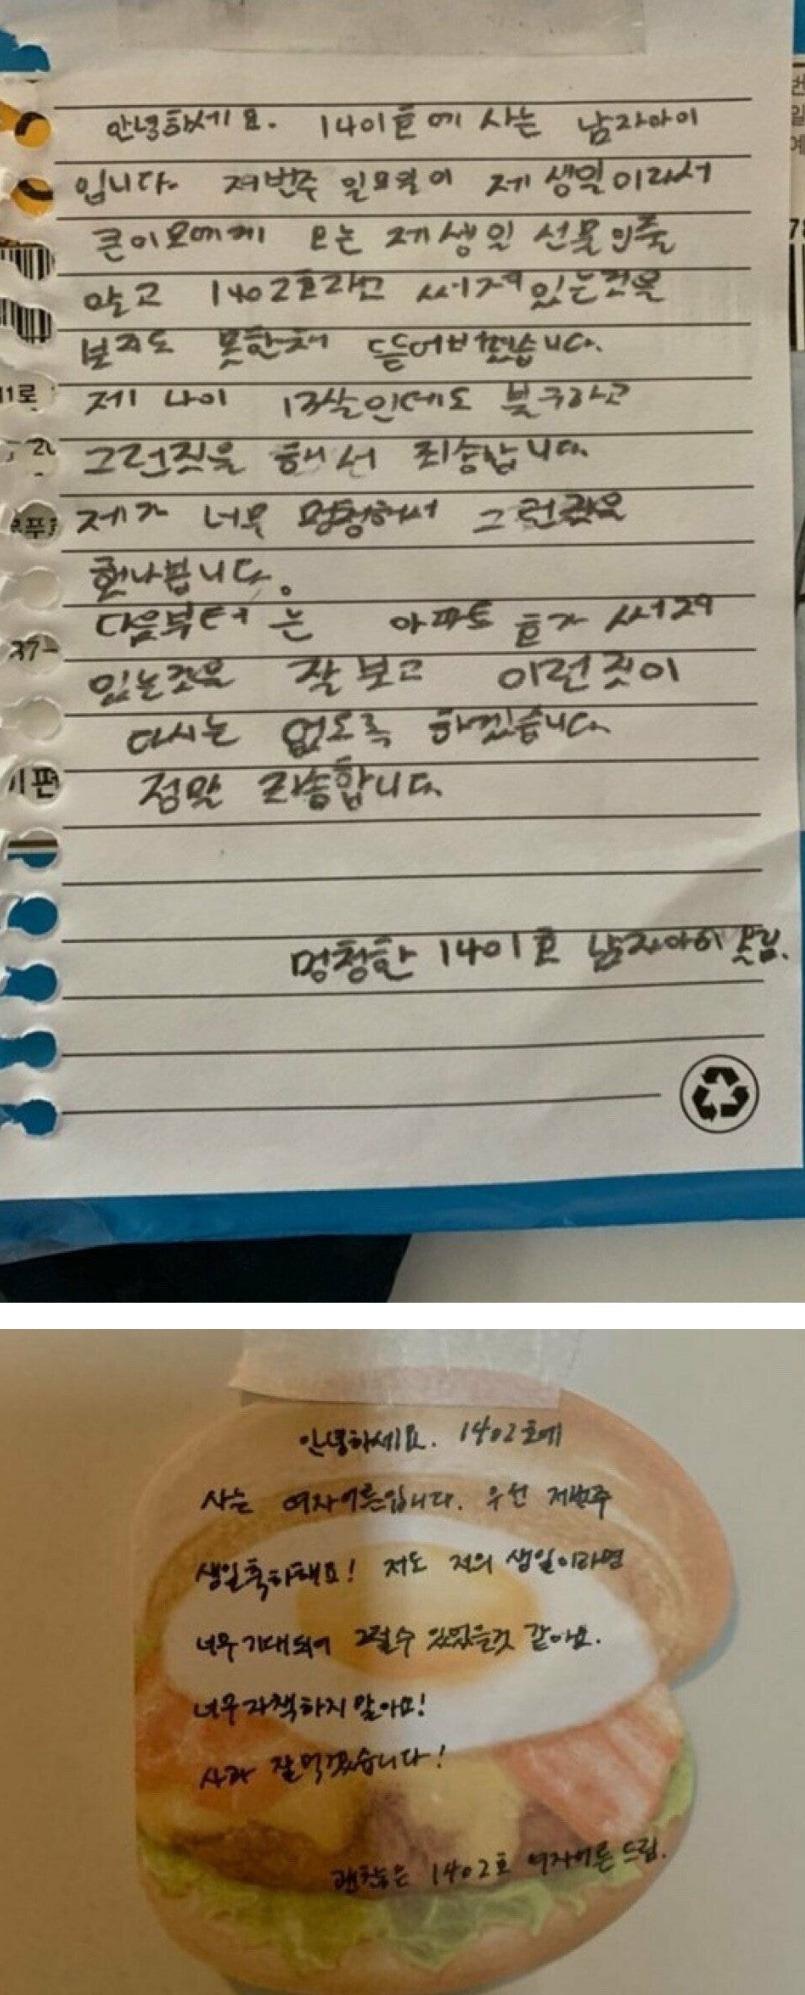 안녕하세요. 1401호에 사는 남자아이
입니다. 저번주 일요일이 제 생일이라서
큰이모에게 오는 제 생일 선물인줄
알고 1402호라고 써져있는것을
보지도 못한채 뜯어버렸습니다.
제 나이 13살인데도 불구하고
그런짓을 해서 죄송합니다.
제가 너무 멍청해서 그런짓을
했나봅니다.
다음부터는 아파트 호가 써져
있는것을 잘 보고 이런짓이
다시는 없도록 하겠습니다.
정말 죄송합니다.
멍청한 1401호 남자아이 올림.
11로
기편
안녕하세요. 1402호에
사는 여자어른입니다. 우선 저번주
생일축하해요! 저도 저의 생일이라면
너무 기대되어 그럴수 있었을것 같아요.
너무 자책하지 말아요!
사과 잘먹겠습니다!
괜찮은 1402호 여자어른 드림.